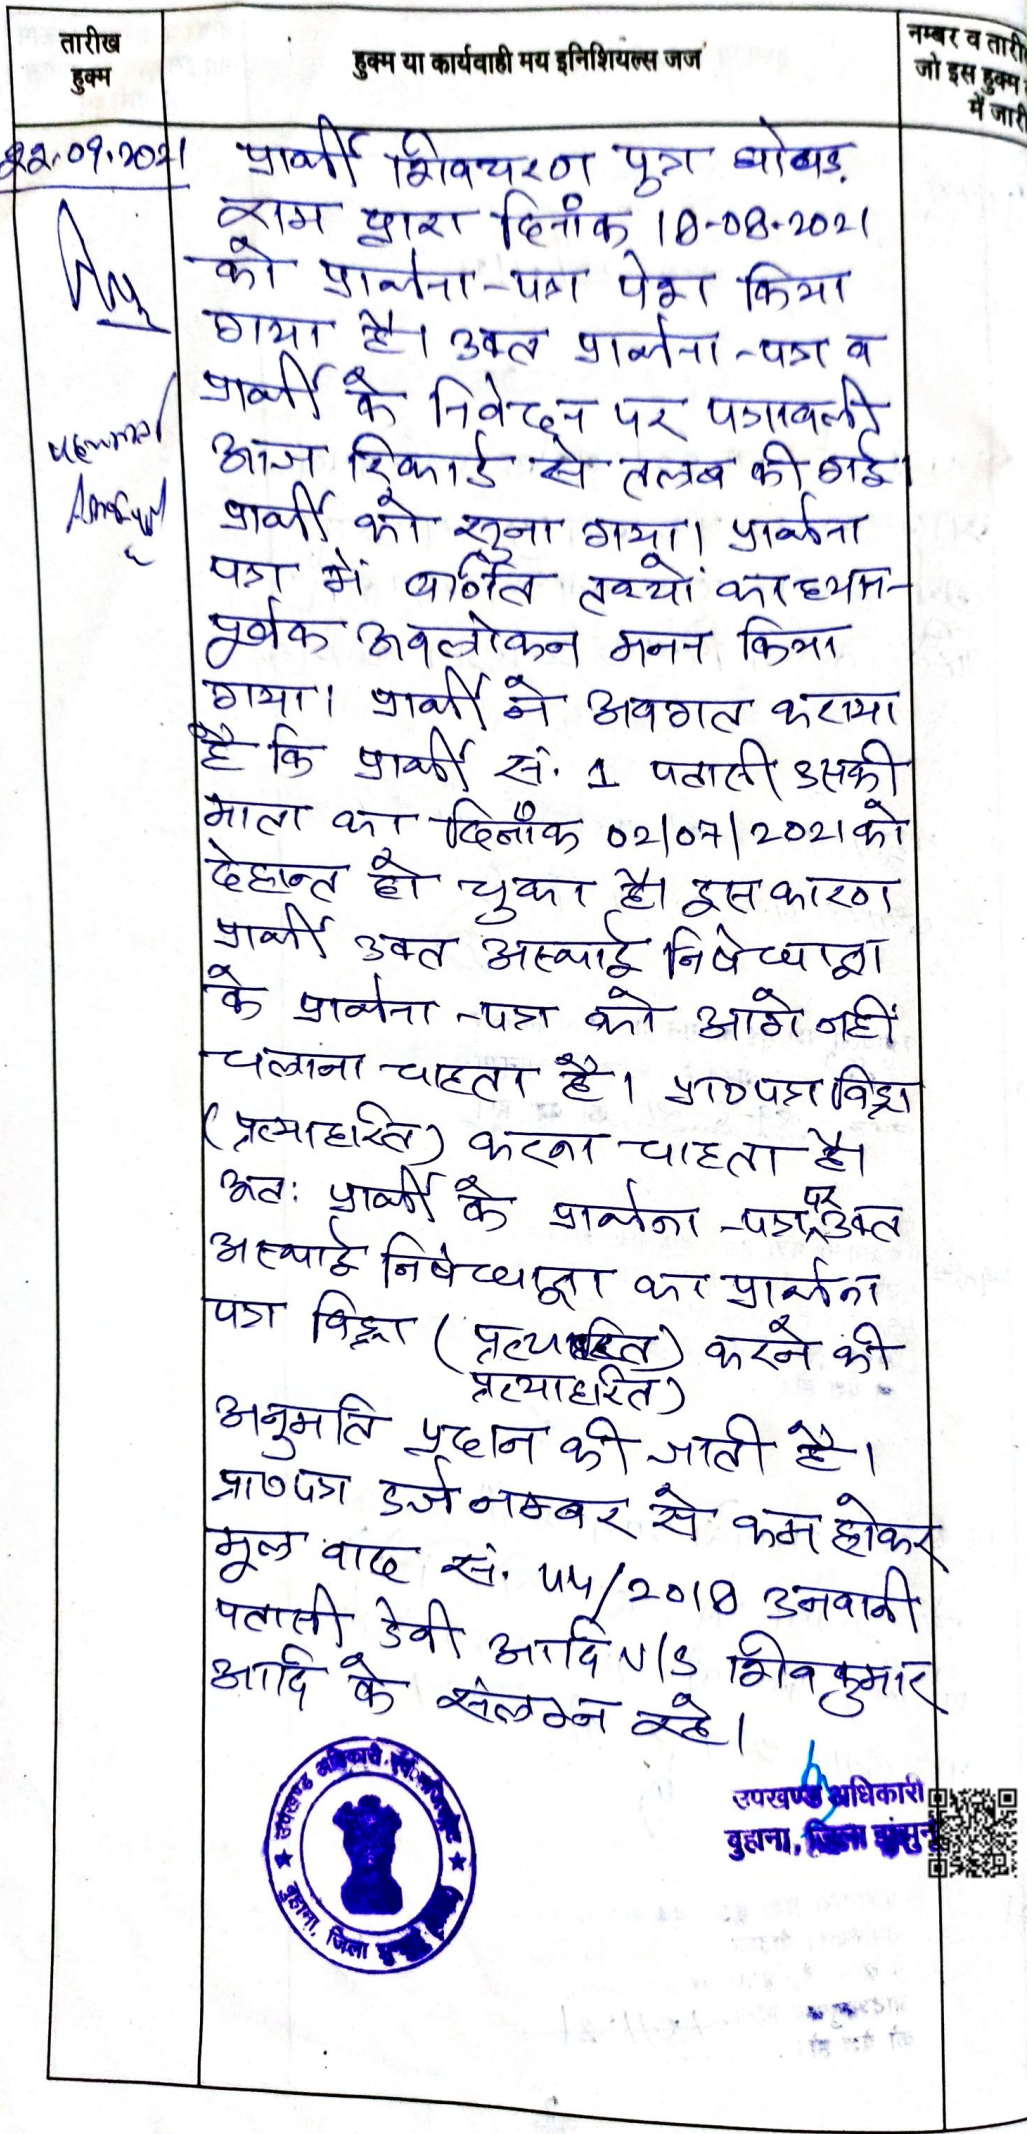 तारीख
हुक्म
हुक्म या कार्यवाही मय इनिशियल्स जज
नम्बर व तारी
जो इस हुक्म
में जारी
22.09.2021
प्रार्थी शिवचरण पुत्र घोबड़
राम द्वारा दिनांक 18-08-2021
को प्रार्थना-पत्र पेश किया
गया है। उक्त प्रार्थना-पत्र व
प्रार्थी के निवेदन पर पत्रावली
आज रिकार्ड से तलब की गई।
प्रार्थी को सुना गया। प्रार्थना
पत्र में वर्णित तथ्यों का ध्यान-
पूर्वक अवलोकन मनन किया
गया। प्रार्थी ने अवगत कराया
है कि प्रार्थी सं. 1 पतासी उसकी
माता का दिनाँक 02/07/2021 को
देहान्त हो चुका है। इस कारण
प्रार्थी उक्त अस्थाई निषेध्याज्ञा
के प्रार्थना-पत्र को आगे नहीं
चलाना चाहता है। प्रा०पत्र विड्रा
(प्रत्याहरित) करना चाहता है।
अतः प्रार्थी के प्रार्थना-पत्र पर उक्त
अस्थाई निषेध्याज्ञा का प्रार्थना
पत्र विड्रा ( करने की
प्रत्याहरित)
अनुमति प्रदान की जाती है।
प्रा०पत्र दर्ज नम्बर से कम होकर
मूल वाद सं. 44/2018 उनवानी
पतासी देवी आदि V/S शिवकुमार
आदि के संलग्न रहे।
उपखण्ड अधिकारी
बुहाना, जिला झुंझुनू
उपखण्ड अधिकारी एवं
बुहाना, जिला